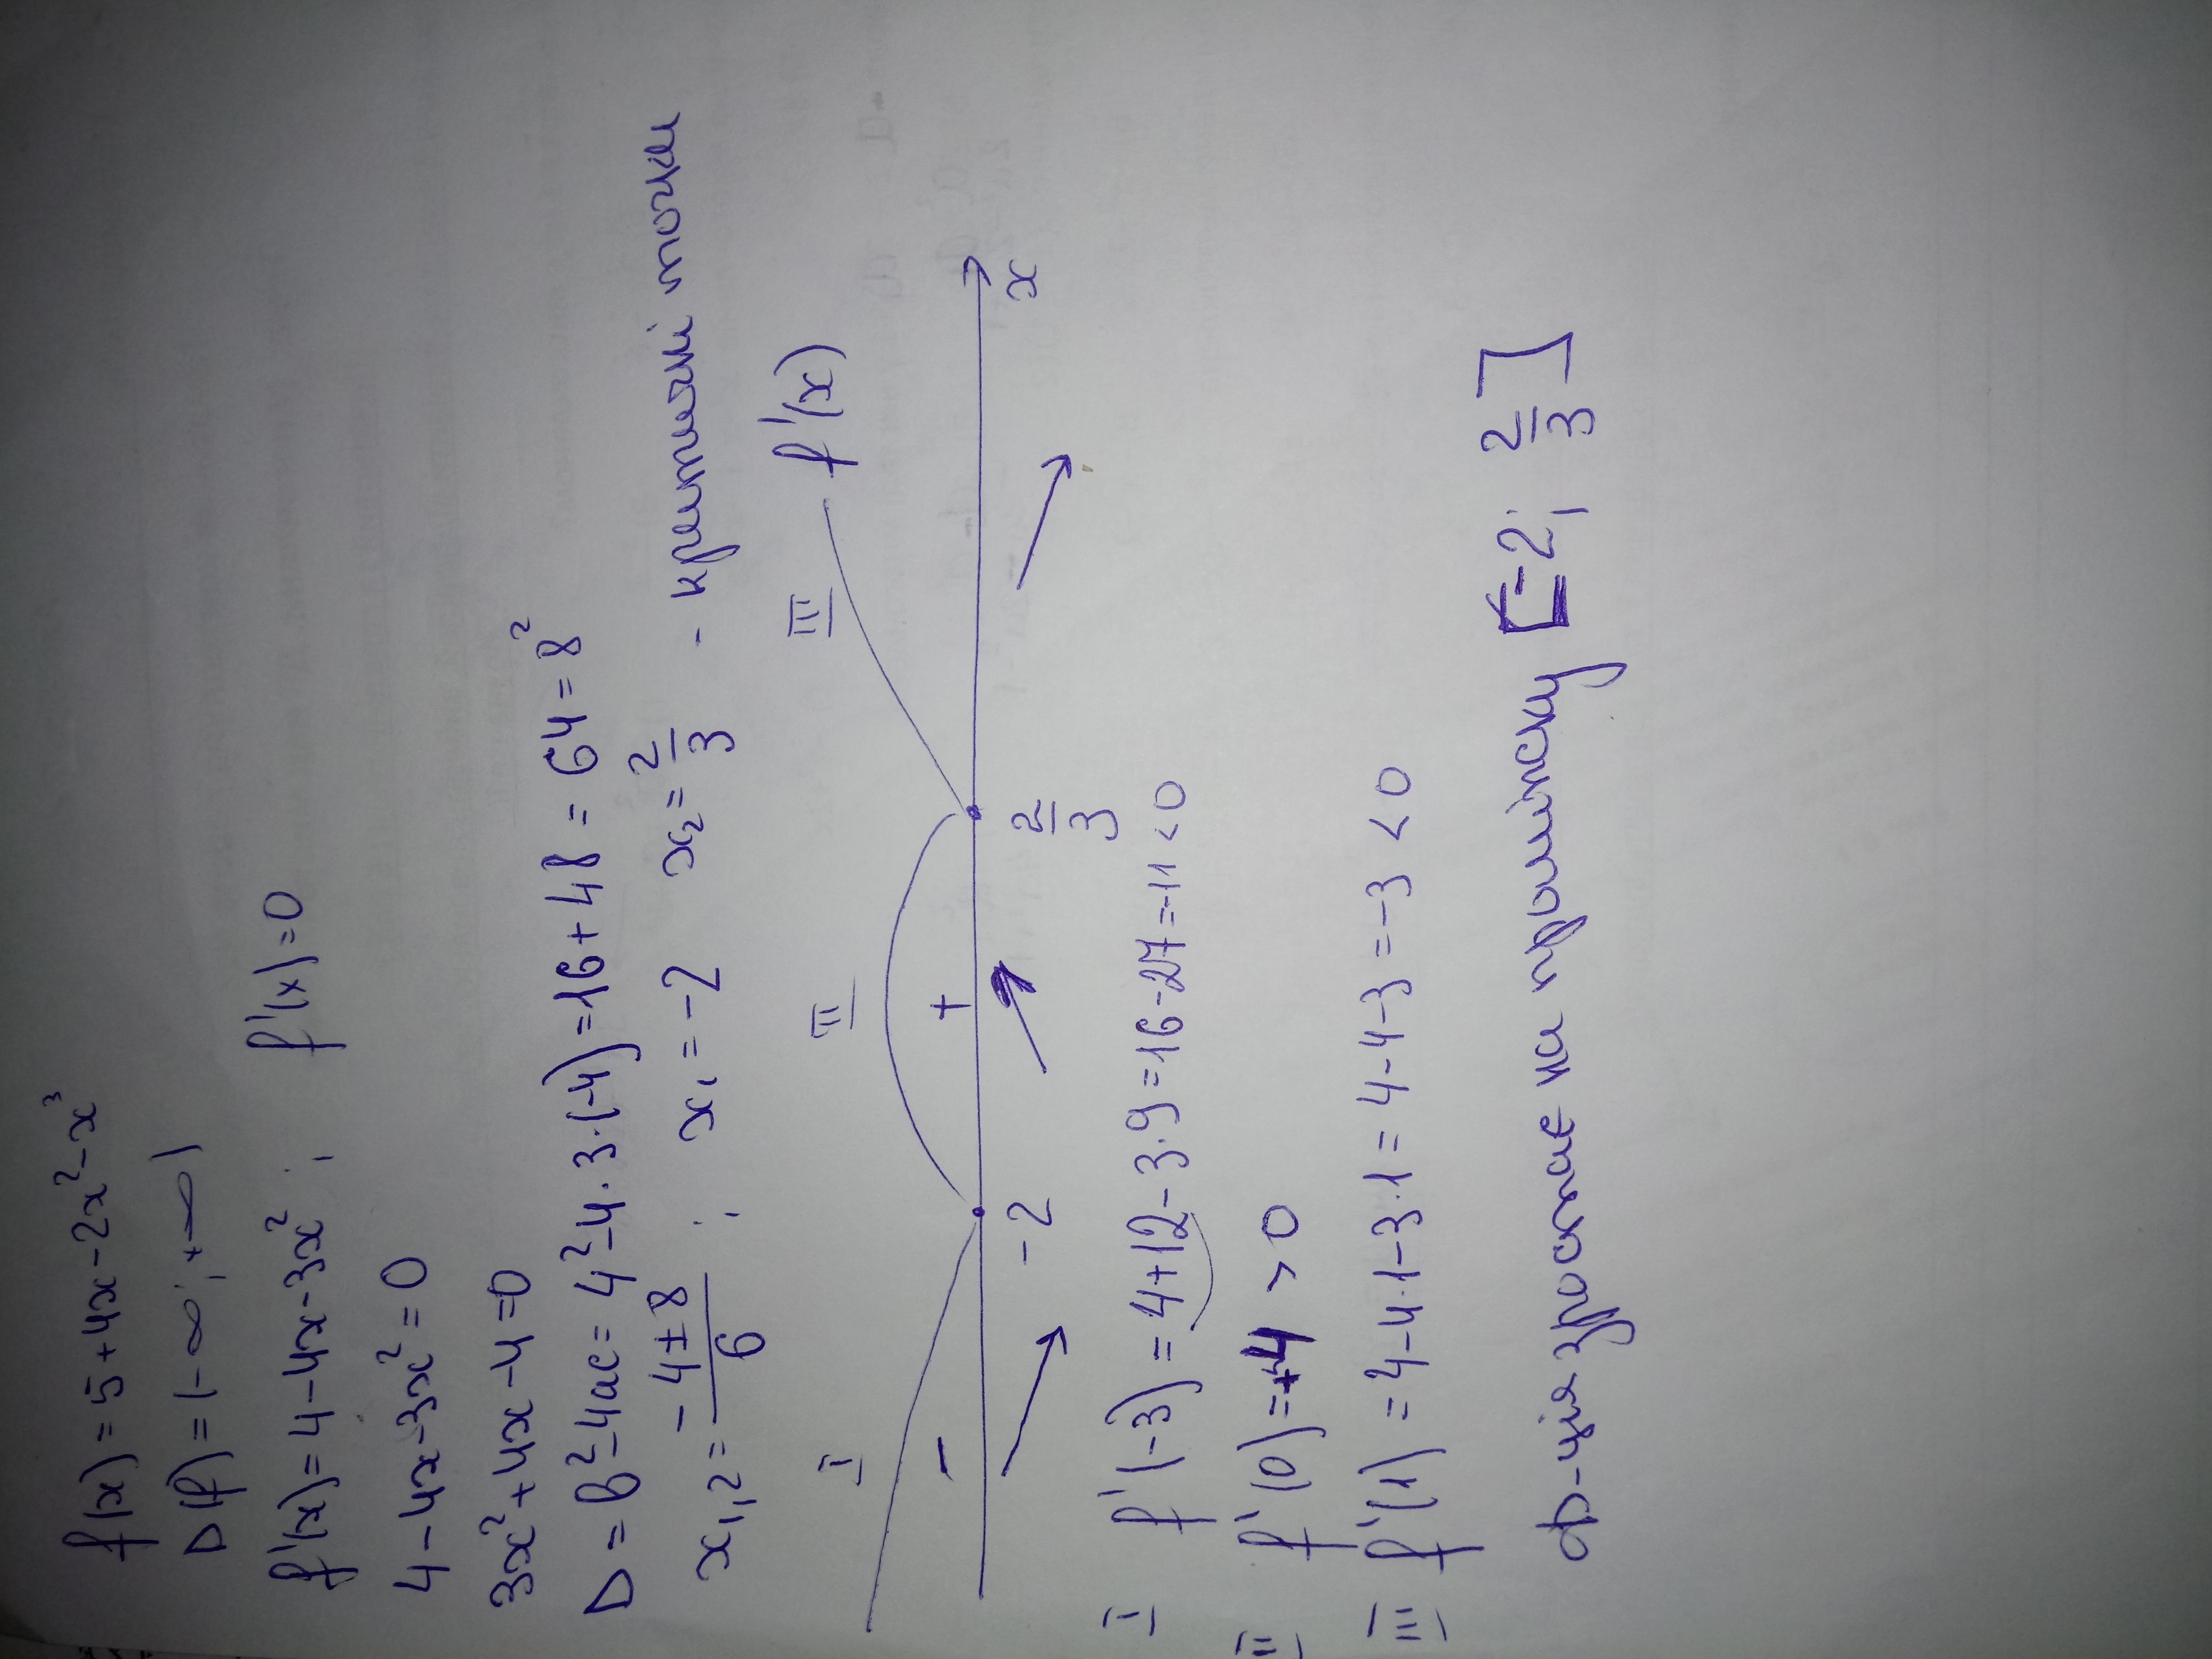 f(x) = 5 + 4x - 2x² - x³
D(f) = (-∞; +∞)
f'(x) = 4 - 4x - 3x² ; f'(x) = 0
4 - 4x - 3x² = 0
3x² + 4x - 4 = 0
D = b² - 4ac = 4² - 4·3·(-4) = 16 + 48 = 64 = 8²
x₁,₂ = (-4 ± 8)/6 ; x₁ = -2 x₂ = 2/3 - критичні точки
I II III f'(x)
- +
-2 2/3 x
I f'(-3) = 4 + 12 - 3·9 = 16 - 27 = -11 < 0
II f'(0) = +4 > 0
III f'(1) = 4 - 4·1 - 3·1 = 4 - 4 - 3 = -3 < 0
ф-ція зростає на проміжку [-2; 2/3]